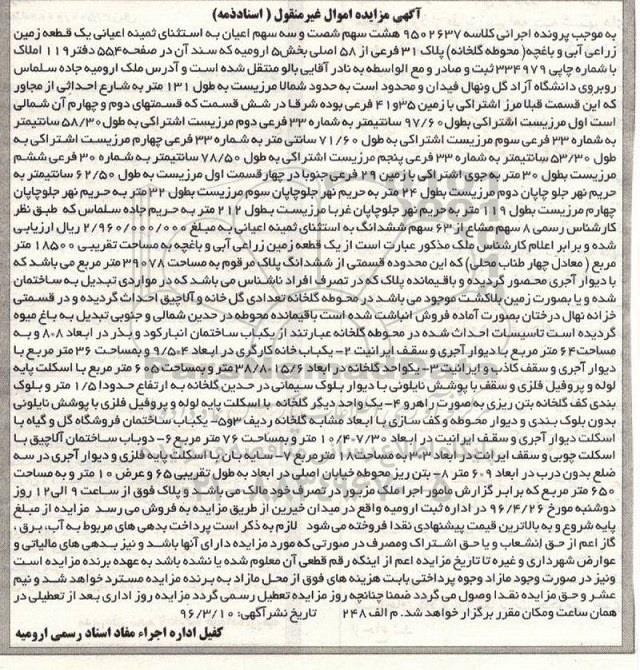 آگهی مزایده اموال غیرمنقول ( اسنادذمه)
به موجب پرونده اجرائی کلاسه ۹۵۰۲۶۳۷ هشت سهم شصت و سه سهم اعیان به استثنای ثمینه اعیانی یک قطعه زمین
زراعی آبی و باغچه( محوطه گلخانه) پلاک ۳۱ فرعی از ۵۸ اصلی بخش۵ ارومیه که سند آن در صفحه۵۵۴ دفتر۱۱۹ املاک
با شماره چاپی ۳۳۴۹۷۹ ثبت و صادر و مع الواسطه به نادر آقایی بالو منتقل شده است و آدرس ملک ارومیه جاده سلماس
روبروی دانشگاه آزاد گل ونهال فیدان و محدود است به حدود شمالا مرزیست به طول ۱۳۱ متر به شارع احداثی از مجاور
که این قسمت قبلا مرز اشتراکی با زمین ۳۵و۴۱ فرعی بوده شرقا در شش قسمت که قسمتهای دوم و چهارم آن شمالی
است اول مرزیست اشتراکی بطول ۹۷/۶۰ سانتیمتر به شماره ۳۳ فرعی دوم مرزیست اشتراکی به طول ۵۸/۳۰ سانتیمتر
به شماره ۳۳ فرعی سوم مرزیست اشتراکی به طول ۷۱/۶۰ سانتی متر به شماره ۳۳ فرعی چهارم مرزیست اشتراکی به
طول ۵۳/۳۰ سانتیمتر به شماره ۳۳ فرعی پنجم مرزیست اشتراکی به طول ۷۸/۵۰ سانتیمتر به شماره ۳۰ فرعی ششم
مرزیست بطول ۳۰ متر به جوی اشتراکی با زمین ۲۹ فرعی جنوبا در چهارقسمت اول مرزیست به طول ۶۲/۵۰ سانتیمتر به
حریم نهر جلو چاپان دوم مرزیست بطول ۲۴ متر به حریم نهر جلوچاپان سوم مرزیست بطول ۳۲ متر به حریم نهر جلوچاپان
چهارم مرزیست بطول ۱۱۹ متر به حریم نهر جلوچاپان غربا مرزیست بطول ۲۱۲ متر به حریم جاده سلماس که طبق نظر
کارشناس رسمی ۸ سهم مشاع از ۶۳ سهم ششدانگ به استثنای ثمینه اعیانی به مبلغ ۲/۹۶۰/۰۰۰/۰۰۰ ریال ارزیابی
شده و برابر اعلام کارشناس ملک مذکور عبارت است از یک قطعه زمین زراعی آبی و باغچه به مساحت تقریبی ۱۸۵۰۰ متر
مربع ( معادل چهار طناب محلی) که این محدوده قسمتی از ششدانگ پلاک مرقوم به مساحت ۳۹۰۷۸ متر مربع می باشد که
با دیوار آجری محصور گردیده و باقیمانده پلاک که در تصرف افراد ناشناس می باشد که در مواردی تبدیل به ساختمان
شده و یا بصورت زمین بلاکشت موجود می باشد در محوطه گلخانه تعدادی گل خانه و آلاچیق احداث گردیده و در قسمتی
خزانه نهال درختان بصورت آماده فروش انباشت شده است باقیمانده محوطه در حدین شمالی و جنوبی تبدیل به باغ میوه
گردیده است تاسیسات احداث شده در محوطه گلخانه عبارتند از یکباب ساختمان انبارکود و بذر در ابعاد ۸و۸ و به
مساحت۶۴ متر مربع با دیوار آجری و سقف ایرانیت ۲- یکباب خانه کارگری در ابعاد ۴و۹/۵ و بمساحت ۳۶ متر مربع با
دیوار آجری و سقف کاذب و ایرانیت ۳- یکواحد گلخانه در ابعاد ۱۵/۶و۳۸/۸۰ و بمساحت ۶۰۵ متر مربع با اسکلت پایه
لوله و پروفیل فلزی و سقف با پوشش نایلونی با دیوار بلوک سیمانی در حدین گلخانه به ارتفاع حدودا ۱/۵ متر و بلوک
بندی کف گلخانه بتن ریزی به صورت راهرو ۴- یک واحد دیگر گلخانه با اسکلت پایه لوله و پروفیل فلزی با پوشش نایلونی
بدون بلوک بندی و دیوار محوطه و کف سازی با ابعاد مشابه گلخانه ردیف ۳و۵- یکباب ساختمان فروشگاه گل و گیاه با
اسکلت دیوار آجری و سقف ایرانیت در ابعاد ۷/۳۰و۱۰/۴۰ متر و بمساحت ۷۶ متر مربع ۶- دوباب ساختمان آلاچیق با
اسکلت چوبی و سقف ایرانیت در ابعاد ۳و۳ به مساحت ۱۸ مترمربع ۷- سایه بان با اسکلت پایه فلزی و دیوار آجری در سه
ضلع بدون درب در ابعاد ۹و۶ متر ۸- بتن ریز محوطه خیابان اصلی در ابعاد به طول تقریبی ۶۵ و عرض ۱۰ متر و به مساحت
۶۵۰ متر مربع که برابر گزارش مامور اجرا ملک مزبور در تصرف خود مالک می باشد و پلاک فوق از ساعت ۹ الی۱۲ روز
دوشنبه مورخ ۹۶/۴/۲۶ در اداره ثبت ارومیه واقع در میدان خیرین از طریق مزایده به فروش می رسد مزایده از مبلغ
پایه شروع و به بالاترین قیمت پیشنهادی نقدا فروخته می شود لازم به ذکر است پرداخت بدهی های مربوط به آب، برق ،
گاز اعم از حق انشعاب و یا حق اشتراک ومصرف در صورتی که مورد مزایده دارای آنها باشد و نیز بدهی های مالیاتی و
عوارض شهرداری و غیره تا تاریخ مزایده اعم از اینکه رقم قطعی آن معلوم شده یا نشده باشد به عهده برنده مزایده است
ونیز در صورت وجود مازاد وجوه پرداختی بابت هزینه های فوق از محل مازاد به برنده مزایده مسترد خواهد شد و نیم
عشر و حق مزایده نقدا وصول می گردد ضمنا چنانچه روز مزایده تعطیل رسمی گردد مزایده روز اداری بعد از تعطیلی در
همان ساعت ومکان مقرر برگزار خواهد شد. م الف ۲۴۸ تاریخ نشر آگهی: ۹۶/۳/۱۰
کفیل اداره اجراء مفاد اسناد رسمی ارومیه